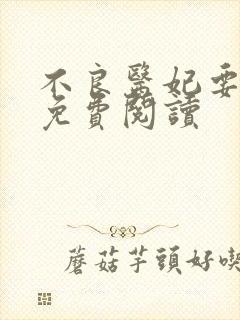 不良醫妃要
免費閱讀
蘑菇芋頭好喫